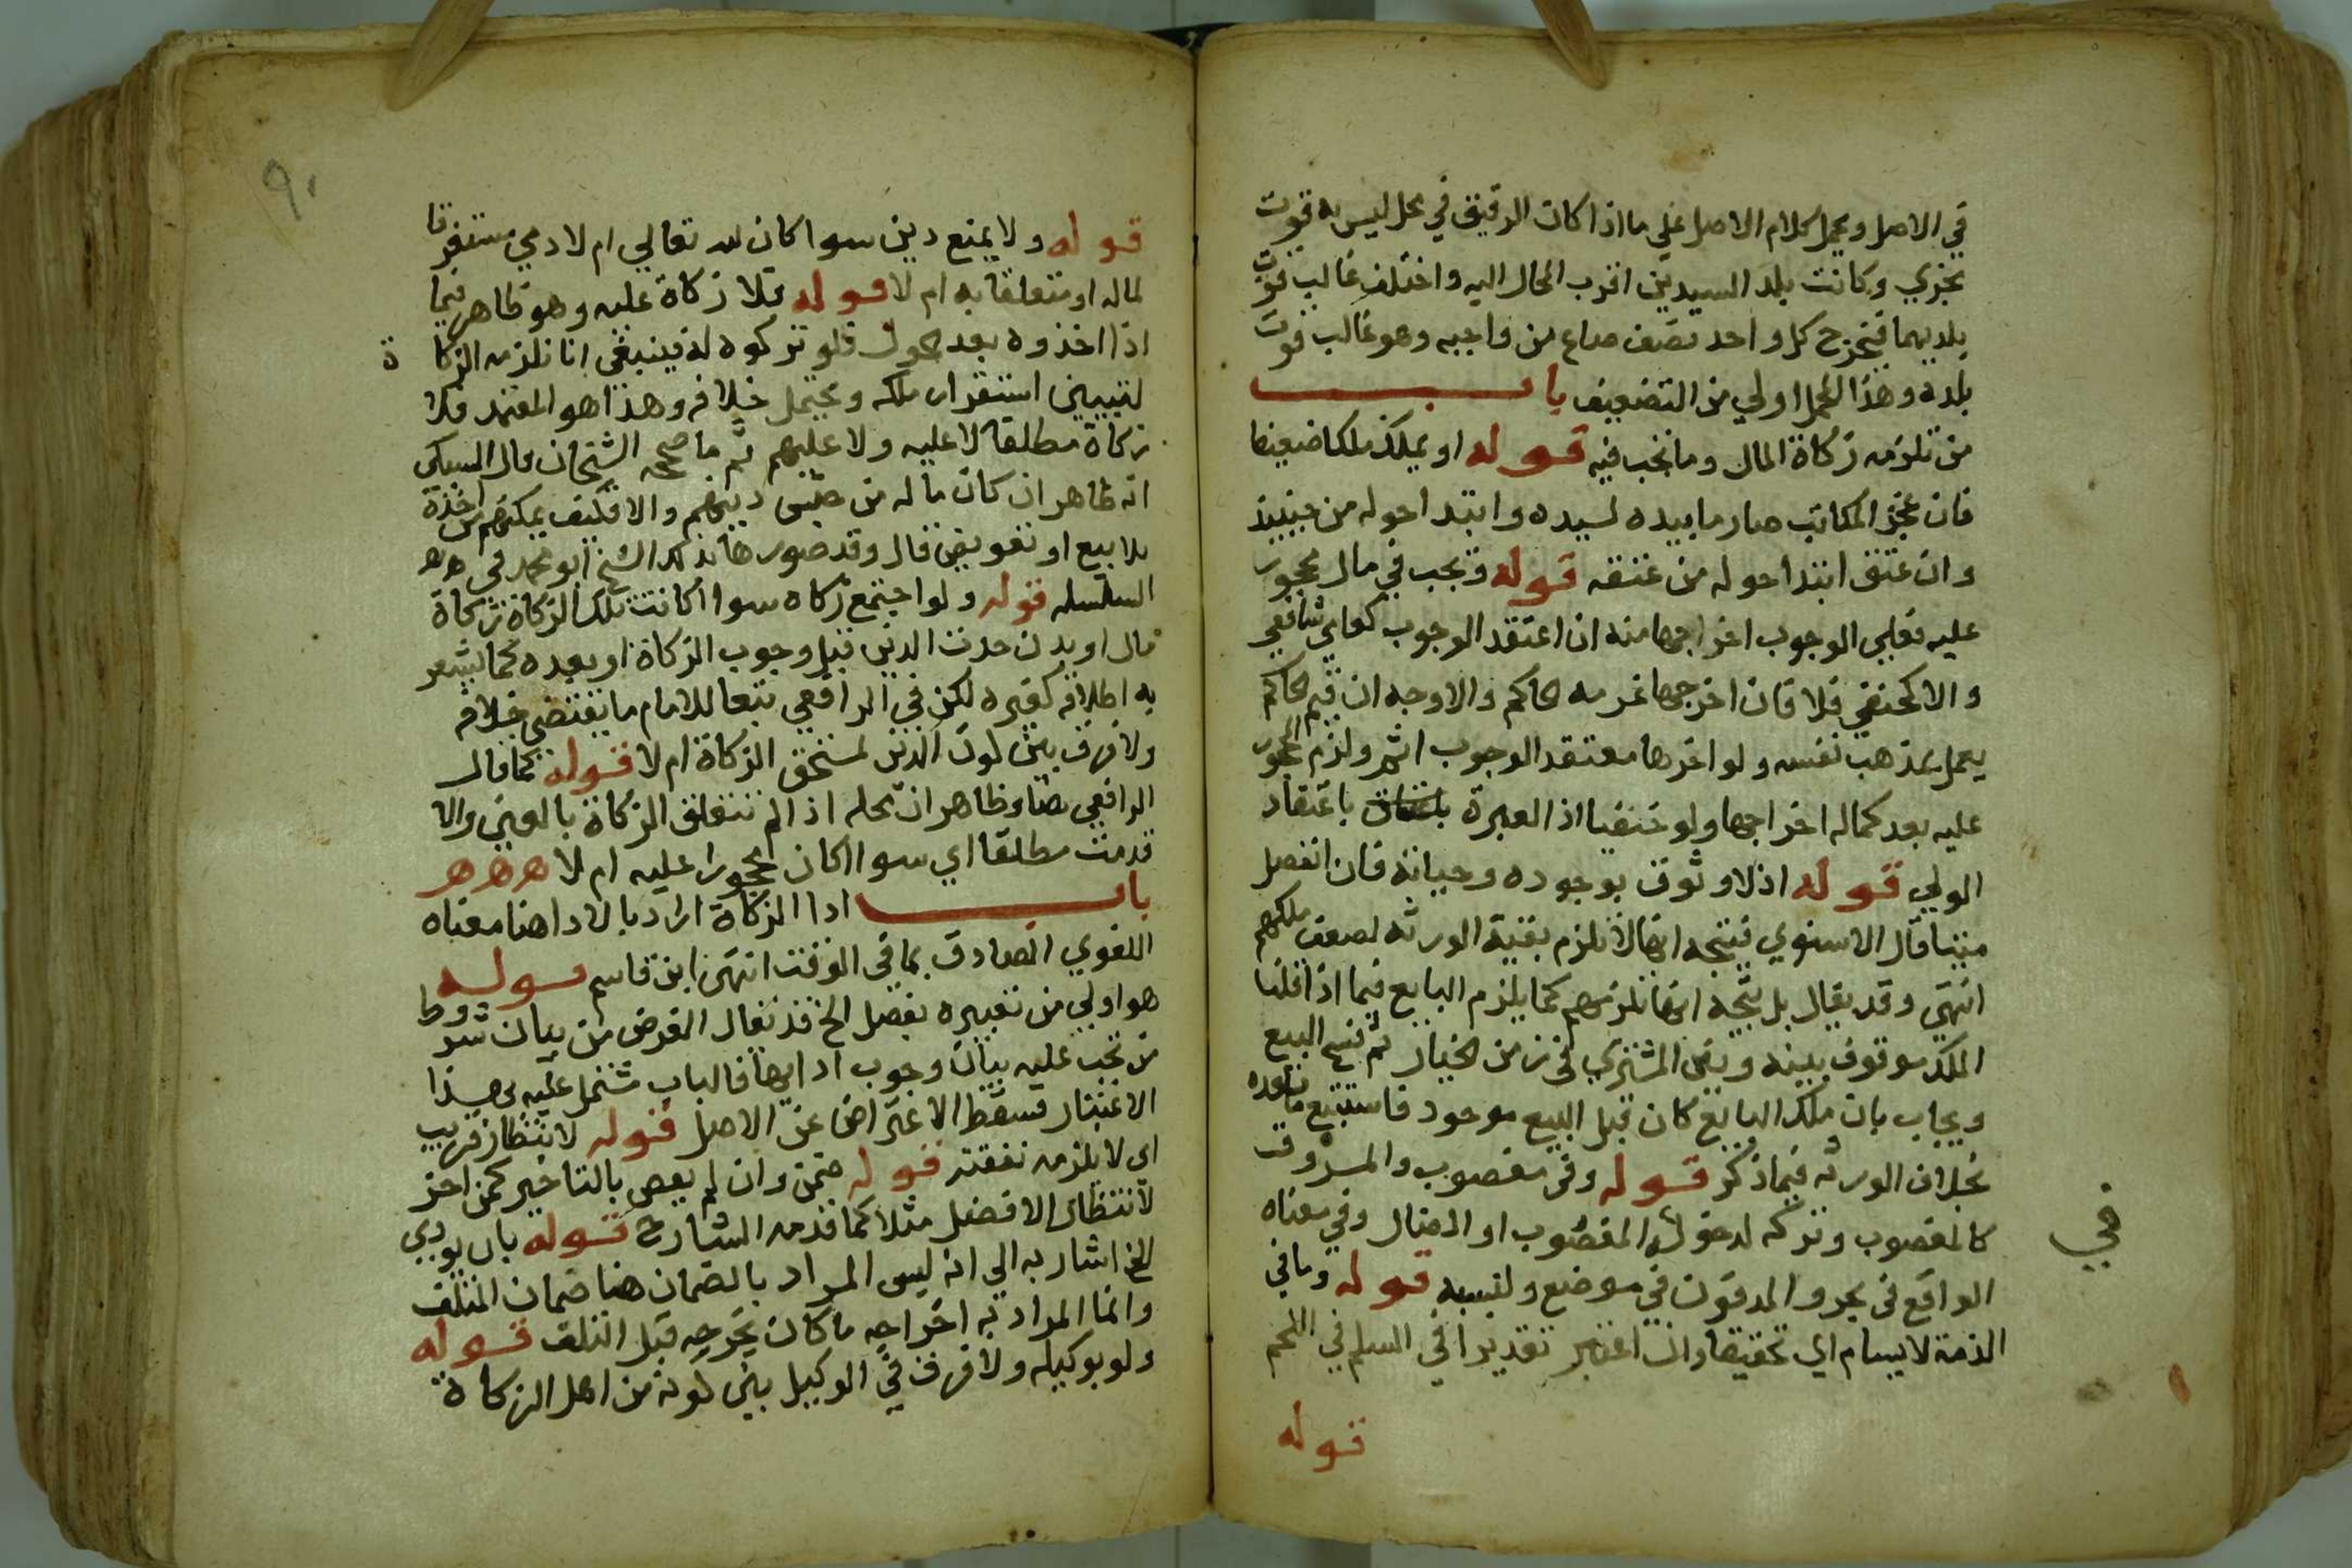 في الاصل ويحمل كلام الاصل علي ما اذا كان الرقيق في محل ليس به قوت
يجزي وكانت بلد السيدين اقرب المحال اليه واختلف غالب قوت
بلديهما فيخرج كل واحد نصف صاع من واجبه وهو غالب قوت
بلده وهذا المحمل اولي من التضعيف باب
من تلزمه زكاة المال وما تجب فيه قوله او يملك ملكا ضعيفا
فان عجز المكاتب صار ما بيده لسيده وابتدا حوله من حينيذ
وان عتق ابتدا حوله من عتقه قوله وتجب في مال محجور
عليه فعلي الوجوب اخراجها منه ان اعتقد الوجوب كعامي شافعي
والا كحنفي فلا فان اخرجها غرمه الحاكم والاوجه ان قيم الحاكم
يعمل بمذهب نفسه ولو اخرها معتقد الوجوب اثم ولزم المحجور
عليه بعد كماله اخراجها ولو حنفيا اذ العبرة باعتقاد
الولي قوله اذ لا وثوق بوجوده وحياته فان انفصل
ميتا قال الاسنوي فيتجه انها لا تلزم بقية الورثه لضعف ملكهم
انتهي وقد يقال بل يتجه انها تلزمهم كما يلزم البايع فيما اذا قلنا
الملك موقوف بينه وبين المشتري في زمن الخيار ثم فسخ البيع
ويجاب بان ملك البايع كان قبل البيع موجود فاستتبع ما بعده
بخلاف الورثه فيما ذكر قوله وفي مغصوب والمسروق
كالمغصوب وتركه لدخوله في المغصوب او الضال وفي معناه
في
الواقع في بحر والمدفون في موضع ونسيه قوله وما في
الذمة لا يسام اي تحقيقا وان اعتبر تقديرا في السلم في اللحم
قوله
٩٠
قوله ولا يمنع دين سوا كان لله تعالي ام لادمي مستغرقا
لماله او متعلقا به ام لا قوله فلا زكاة عليه وهو ظاهر فيما
اذا اخذوه بعد الحول فلو تركوه له فينبغي ان تلزمه الزكاة
لتبيين استقرار ملكه ويحتمل خلافه وهذا هو المعتمد فلا
زكاة مطلقا لا عليه ولا عليهم ثم ما صححه الشيخان قال السبكي
انه ظاهر ان كان ماله من جنس دينهم والا فكيف يمكنهم من اخذه
بلا بيع او تعويض قال وقد صورها بذلك الشيخ ابو محمد في
السلسله قوله ولو اجتمع زكاه سوا اكانت تلك الزكاة زكاة
مال او بدن حدث الدين قبل وجوب الزكاة او بعده كما يشعر
به اطلاقه كغيره لكن في الرافعي تبعا للامام ما يقتضي خلافه
ولا فرق بين كون الدين لمستحق الزكاة ام لا قوله كما قال
الرافعي هنا وظاهر ان محله اذ الم تتعلق الزكاة بالعين والا
قدمت مطلقا اي سوا اكان محجورا عليه ام لا ه ه ه
باب ادا الزكاة اراد بالادا هنا معناه
اللغوي الصادق بما في الوقت انتهي ابن قاسم قوله
هو اولي من تعبيره بفصل الخ قد يقال الغرض من بيان شروط
من تجب عليه بيان وجوب ادايها فالباب مشتمل عليه بهذا
الاعتبار فسقط الاعتراض عن الاصل قوله لانتظار قريب
اي لا يلزمه نفقته قوله ضمن وان لم يعص بالتاخير كمن اخر
لانتظار الافضل مثلا كما قدمه الشارح قوله بان يودي
الخ اشار به الي انه ليس المراد بالضمان هنا ضمان المتلف
وانما المراد به اخراجه ما كان يخرجه قبل التلف قوله
ولو بوكيله ولا فرق في الوكيل بين كونه من اهل الزكاة